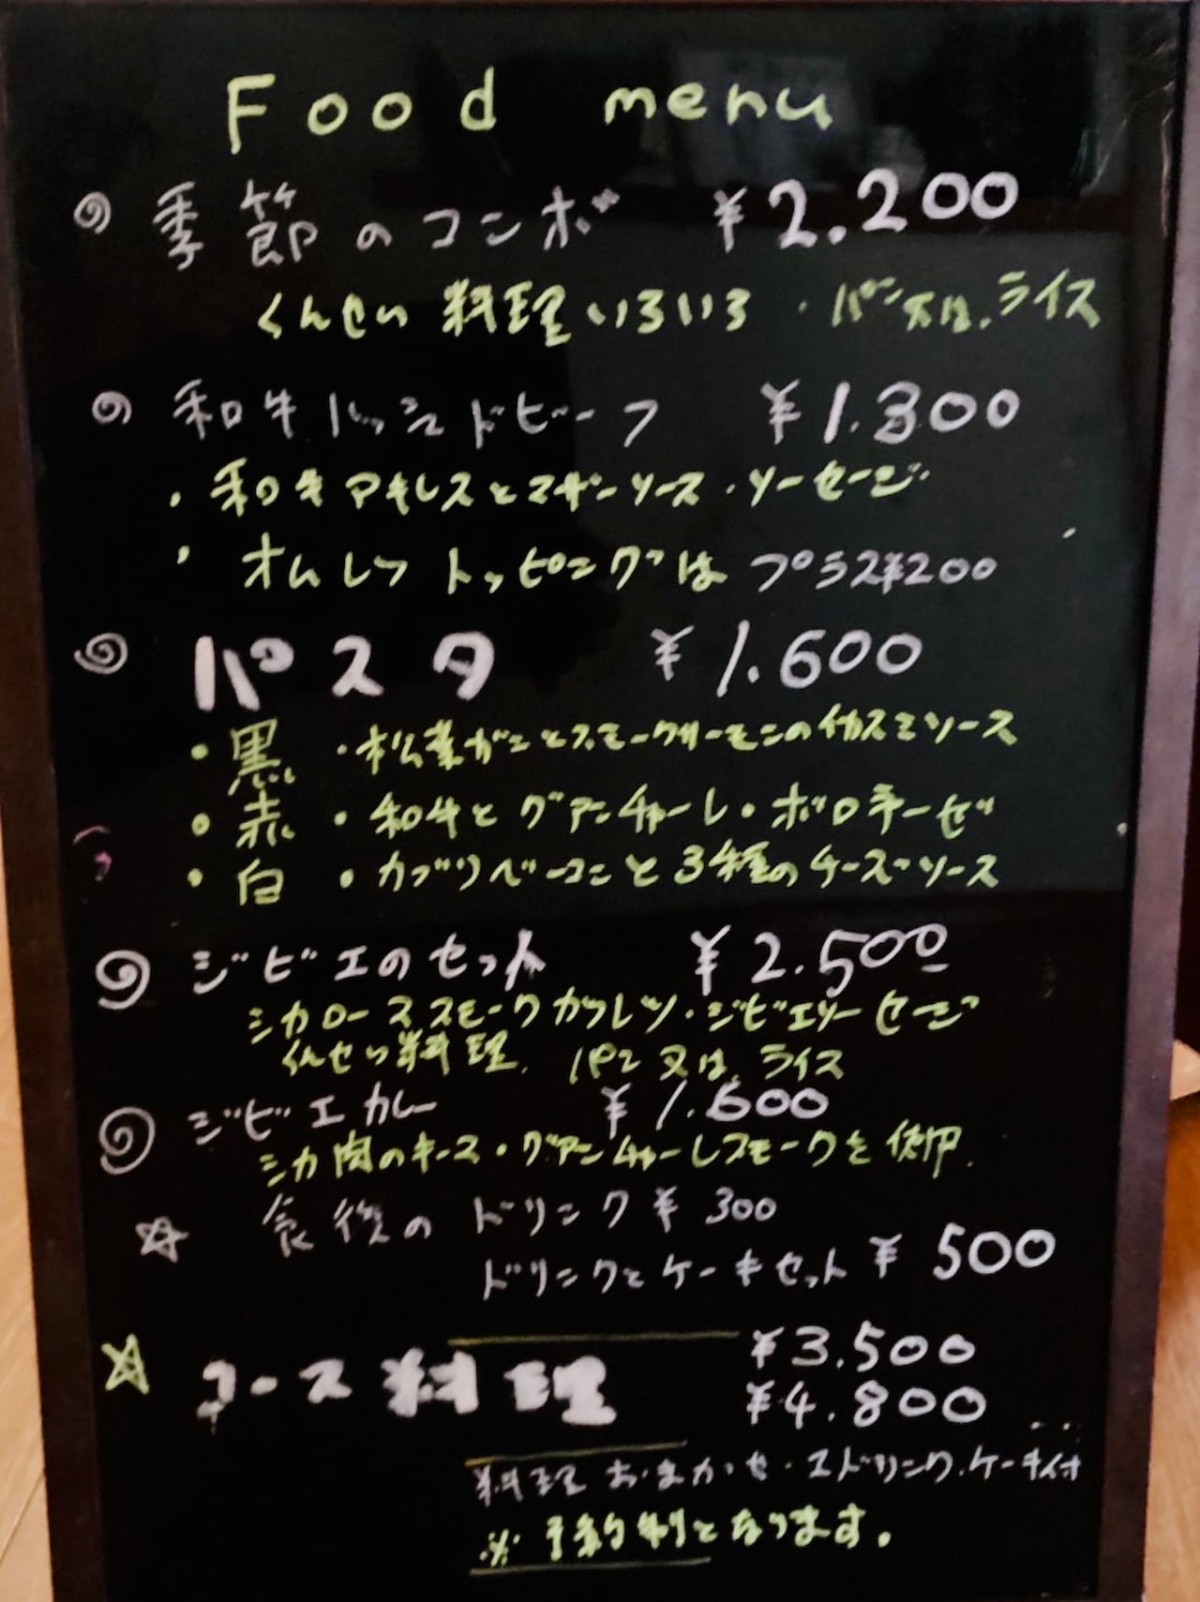 Food menu
季節のコンボ ¥2.200
くんせい料理いろいろ・パン又は、ライス
和牛ハッシュドビーフ ¥1.300
・和牛アキレスとマザーソース・ソーセージ
・オムレツトッピングは プラス¥200
パスタ ¥1.600
・黒・松葉がにとスモークサーモンの イカスミソース
・赤・和牛とグアンチャーレ・ボロネーゼ
・白・カブリベーコンと3種のチーズソース
ジビエのセット ¥2.500
シカロース スモークカツレツ・ジビエソーセージ
くんせい料理、パン又は、ライス
ジビエカレー ¥1.600
シカ肉のキーマ・グアンチャーレスモークを使用
☆ 食後の ドリンク ¥300
ドリンクとケーキセット ¥500
☆ コース料理 ¥3.500
¥4.800
料理 おまかせ・1ドリンク、ケーキ付
※予約制となります。